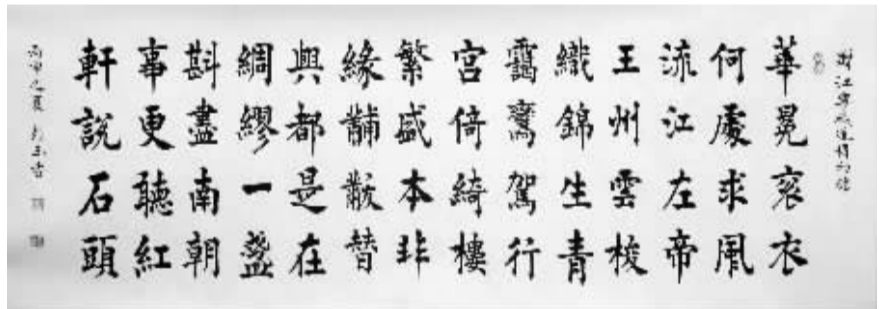 江寧織造博物館
華冕袞衣
何處求風
流江左帝
王州雲梭
織錦生青
靄鸞駕行
宮倚綺樓
繁盛本非
緣黼黻替
興都是在
綢繆一盞
斟盡南朝
事更聽紅
軒說石頭
丙申之夏